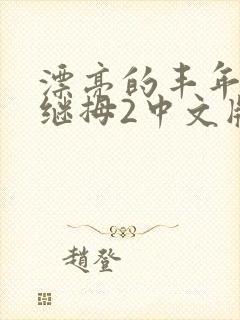 漂亮的丰年
继拇2中文版
趙登